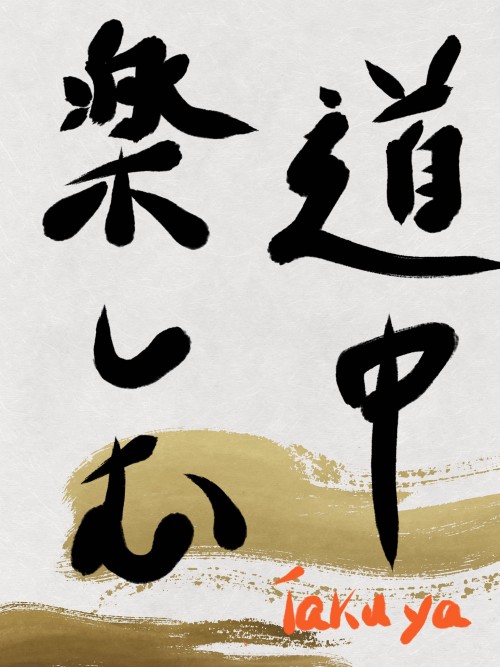 道中
楽しむ
Takuya